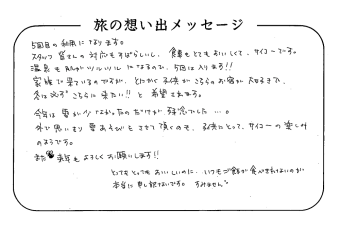 旅の想い出メッセージ
5回目の利用になります。
スタッフ皆さんの対応もすばらしいし、食事もとてもおいしくて、サイコーです。
温泉も肌がツルツルになるので、5回は入ります!!
家族で来ているのですが、とにかく子供がこちらのお宿が大好きで、
冬は必ずこちらに来たい!!と希望されます。
今年は雪が少なかったのだけが残念でした…。
外で思いきり雪あそびをさせて頂くのも、子供にとって、サイコーの楽しみ
のようです。
来年もよろしくお願いします!!
とってもとってもおいしいのに、いつもご飯が食べきれないのが
本当に申し訳ないです。すみません。